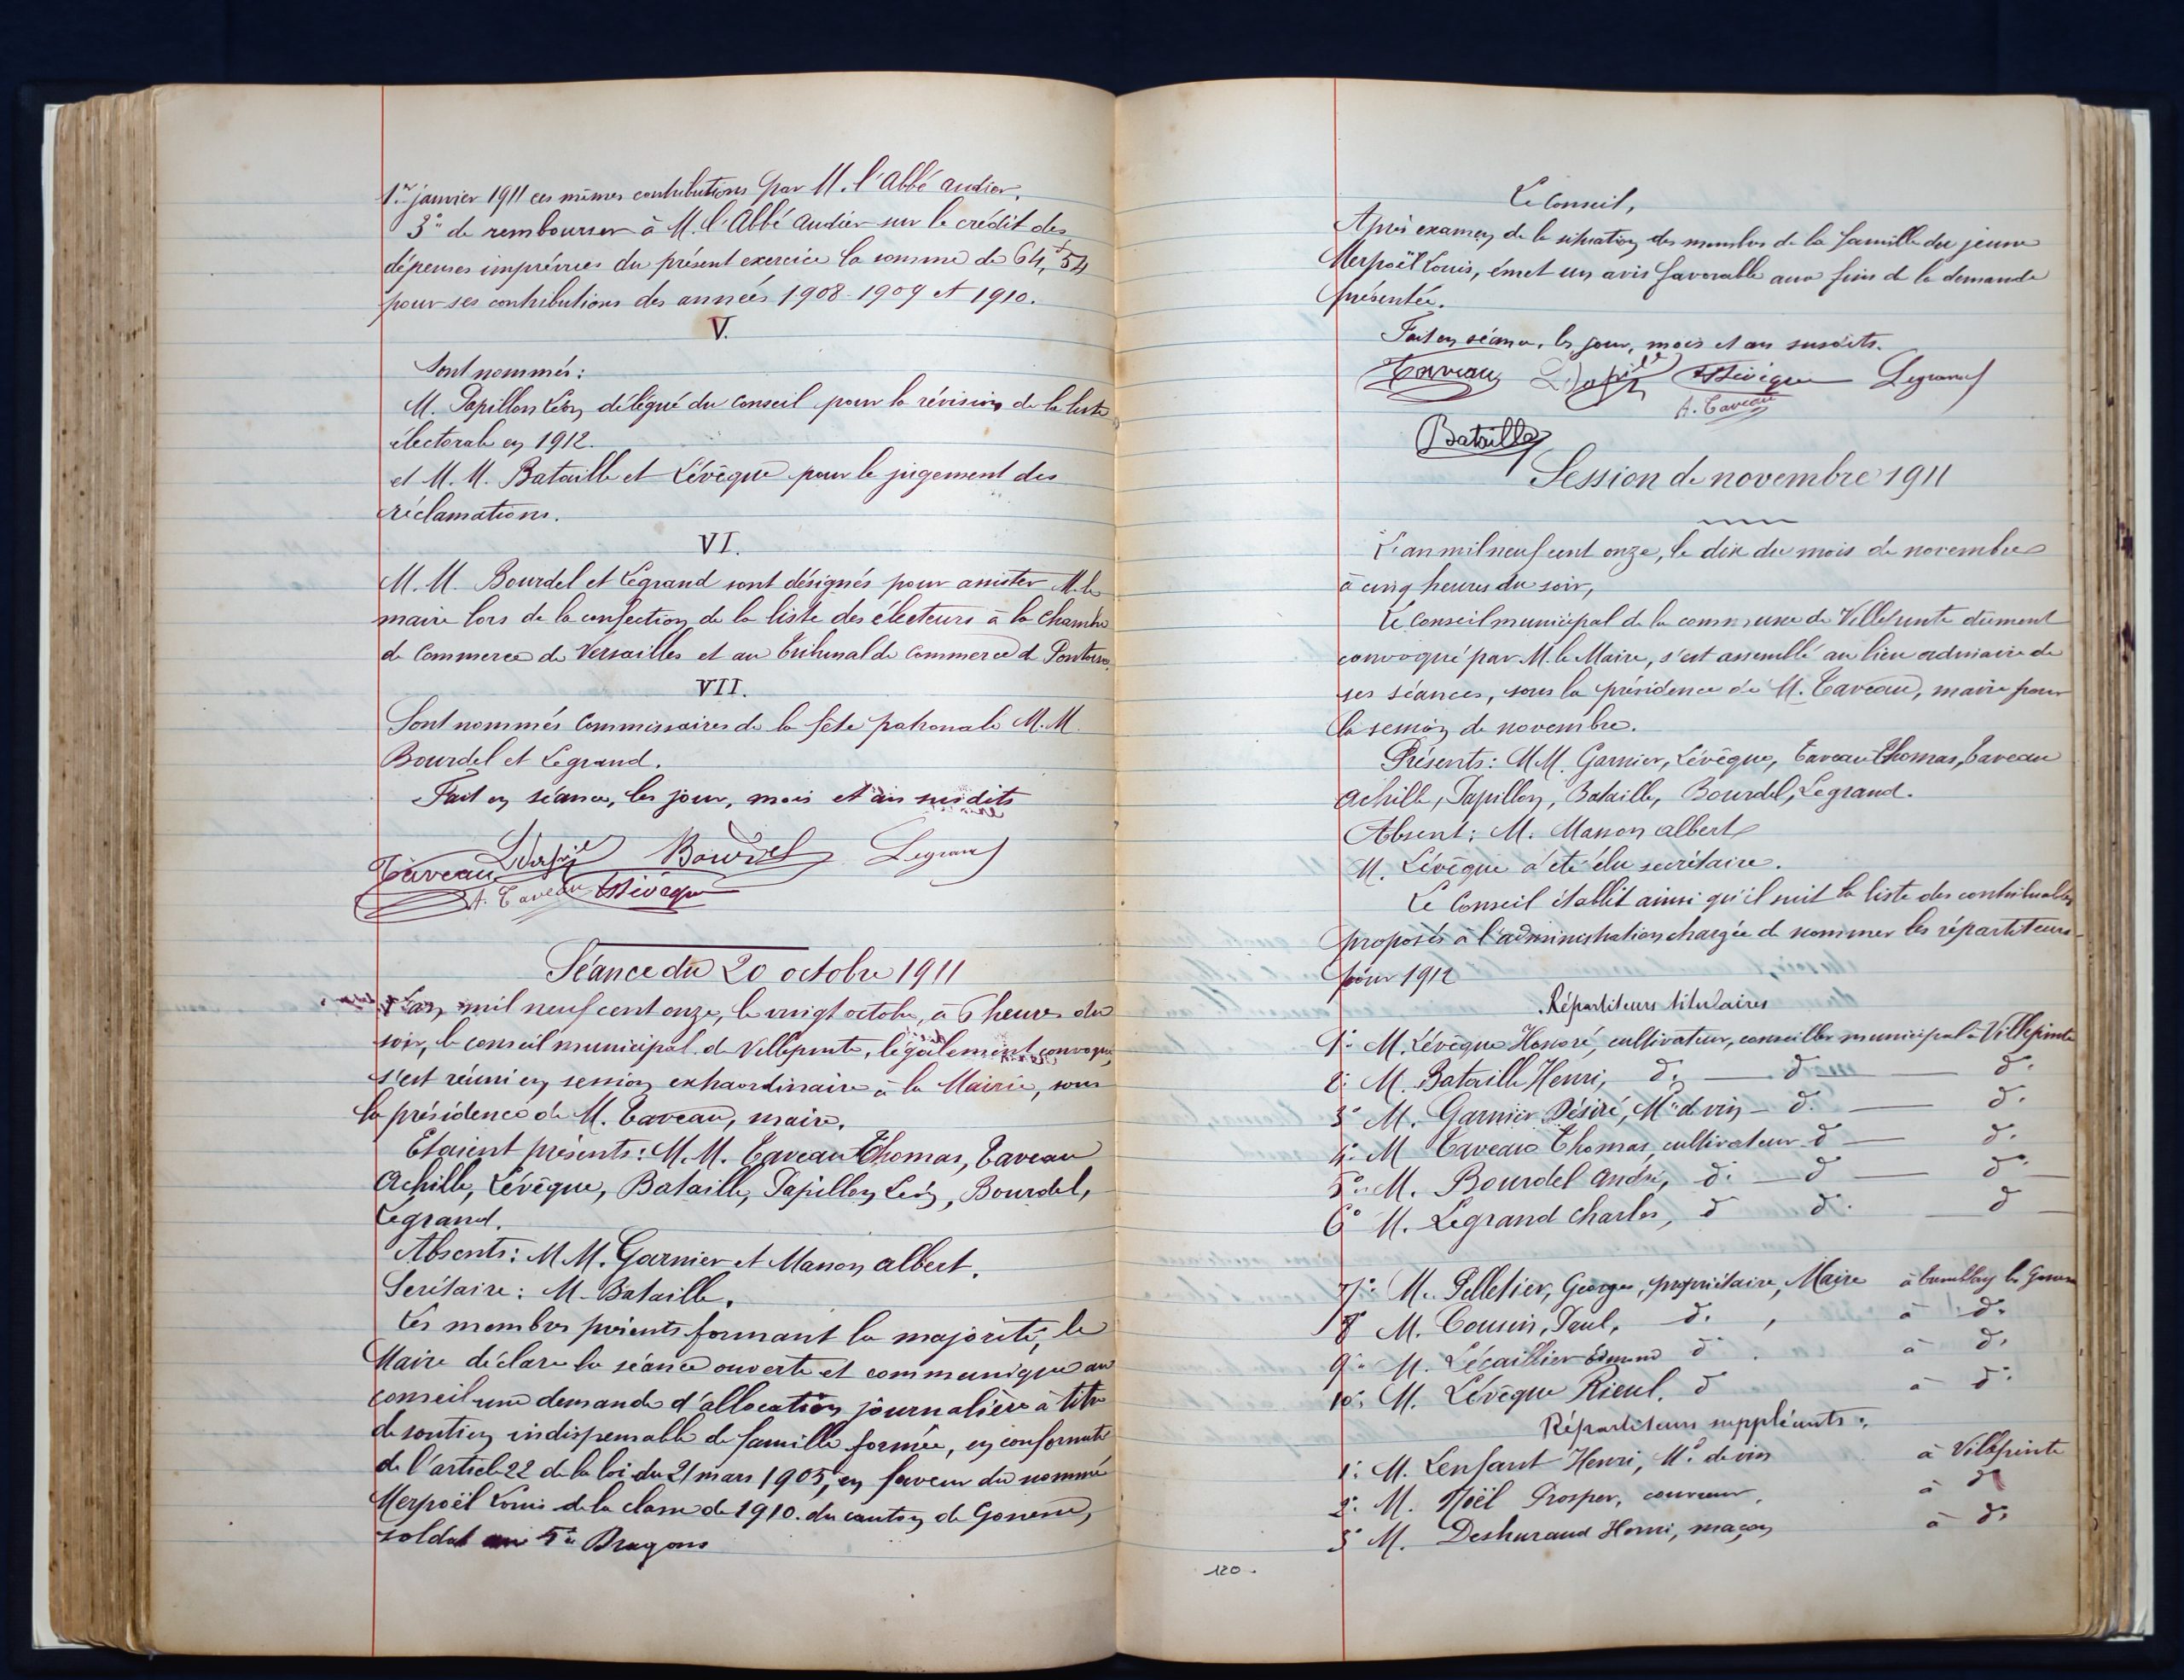 1er janvier 1911 ces mêmes contributions par M. l'Abbé Audier.
3° de rembourser à M. l'Abbé Audier sur le crédit des
dépenses imprévues du présent exercice la somme de 64,f54
pour ses contributions des années 1908-1909 et 1910.
V.
Sont nommés:
M. Papillon Léon délégué du Conseil pour la révision de la liste
électorale en 1912.
et M. M. Bataille et Lévêque pour le jugement des
réclamations.
VI.
M. M. Bourdel et Legrand sont désignés pour assister M. le
maire lors de la confection de la liste des électeurs à la Chambre
de Commerce de Versailles et au Tribunal de Commerce de Pontoise.
VII.
Sont nommés Commissaires de la fête patronale M. M.
Bourdel et Legrand.
Fait en séance, les jour, mois et an susdits
Taveau Bourdel Legrand
A. Taveau Lévêque
Séance du 20 octobre 1911
L'an mil neuf cent onze, le vingt octobre, à 6 heures du
soir, le conseil municipal de Villepinte, légalement convoqué,
s'est réuni en session extraordinaire à la Mairie, sous
la présidence de M. Taveau, maire.
Etaient présents: M. M. Taveau Thomas, Taveau
Achille, Lévêque, Bataille, Papillon Léon, Bourdel,
Legrand.
Absents: M M. Garnier et Masson Albert.
Serétaire: M. Bataille.
Les membres présents formant la majorité, le
Maire déclare la séance ouverte et communique au
conseil une demande d'allocation journalière à titre
de soutien indispensable de famille formée, en conformité
de l'article 22 de la loi du 21 mars 1905, en faveur du nommé
Merpoël Louis de la classe de 1910. du canton de Gonesse,
soldat au 5e Dragons
Le Conseil,
Après examen de la situation des membres de la famille du jeune
Merpoël Louis, émet un avis favorable aux fins de la demande
présentée.
Fait en séance, les jour, mois et an susdits.
Taveau Lévêque Legrand
A. Taveau
Bataille
Session de novembre 1911
L'an mil neuf cent onze, le dix du mois de novembre
à cinq heures du soir,
Le Conseil municipal de la commune de Villepinte dûment
convoqué par M. le Maire, s'est assemblé au lieu ordinaire de
ses séances, sous la présidence de M. Taveau, maire pour
la session de novembre.
Présents: M.M. Garnier, Lévêque, Taveau Thomas, Taveau
Achille, Papillon, Bataille, Bourdel, Legrand.
Absent: M. Masson Albert
M. Lévêque a été élu secrétaire.
Le Conseil établit ainsi qu'il suit la liste des contribuables
proposés à l'administration chargée de nommer les répartiteurs
pour 1912
Répartiteurs titulaires
1° M. Lévêque Honoré, cultivateur, conseiller municipal à Villepinte
2° M. Bataille Henri, d° — d° — d°
3° M. Garnier Désiré, Md de vin — d° — d°
4° M Taveau Thomas, cultivateur d° — d°
5° M. Bourdel André, d° — d° — d°
6° M. Legrand Charles, d° d° — d°
7° M. Pelletier, Georges, propriétaire, Maire à Tremblay les Gonesse
8° M. Cousin, Paul, d° , à d°
9° M. Lécaillier Edmond d° . à d°
10° M. Lévêque Rieul. d° à d°
Répartiteurs suppléants:
1° M. Lenfant Henri, Md de vin à Villepinte
2° M. Noël Prosper, couvreur, à d°
3° M. Henri, maçon à d°
120.